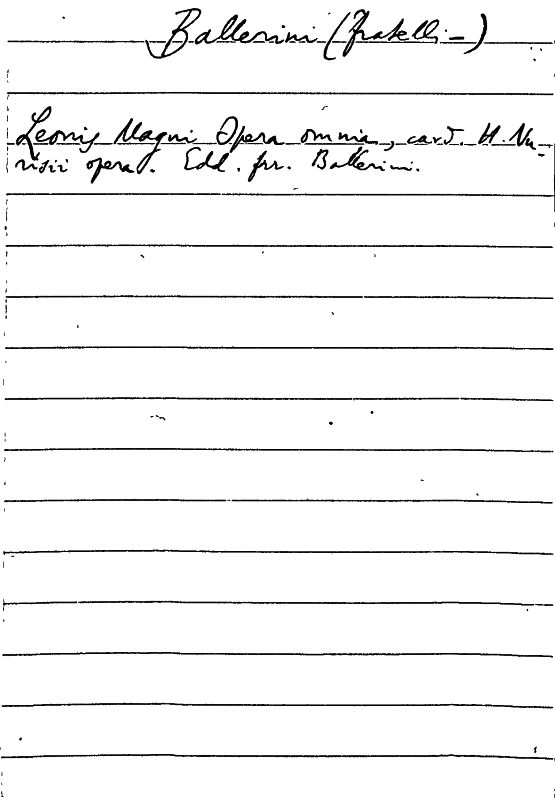 Ballerini (fratelli -)
Leonis Magni Opera omnia, card. H. Nu-
risii opera. Edd. frr. Ballerini.